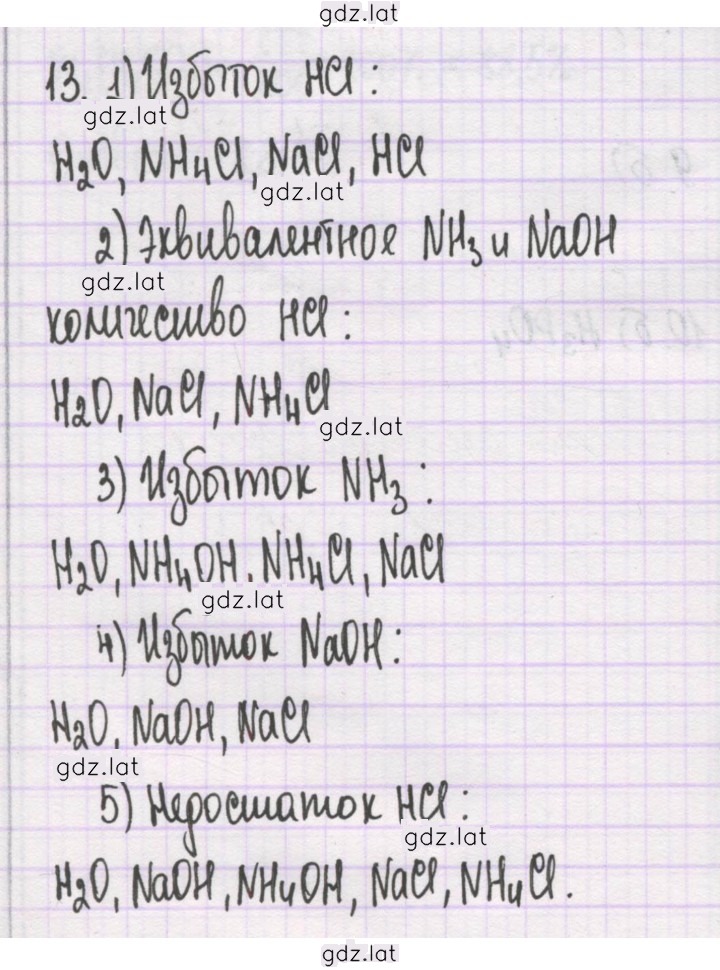 gdz.lat
13. 1) Избыток HCl:
gdz.lat
H₂O, NH₄Cl, NaCl, HCl
gdz.lat
2) Эквивалентное NH₃ и NaOH
gdz.lat
количество HCl:
H₂O, NaCl, NH₄Cl
gdz.lat
3) Избыток NH₃:
H₂O, NH₄OH, NH₄Cl, NaCl
gdz.lat
4) Избыток NaOH:
H₂O, NaOH, NaCl
gdz.lat
5) Недостаток HCl:
gdz.lat
H₂O, NaOH, NH₄OH, NaCl, NH₄Cl.
gdz.lat